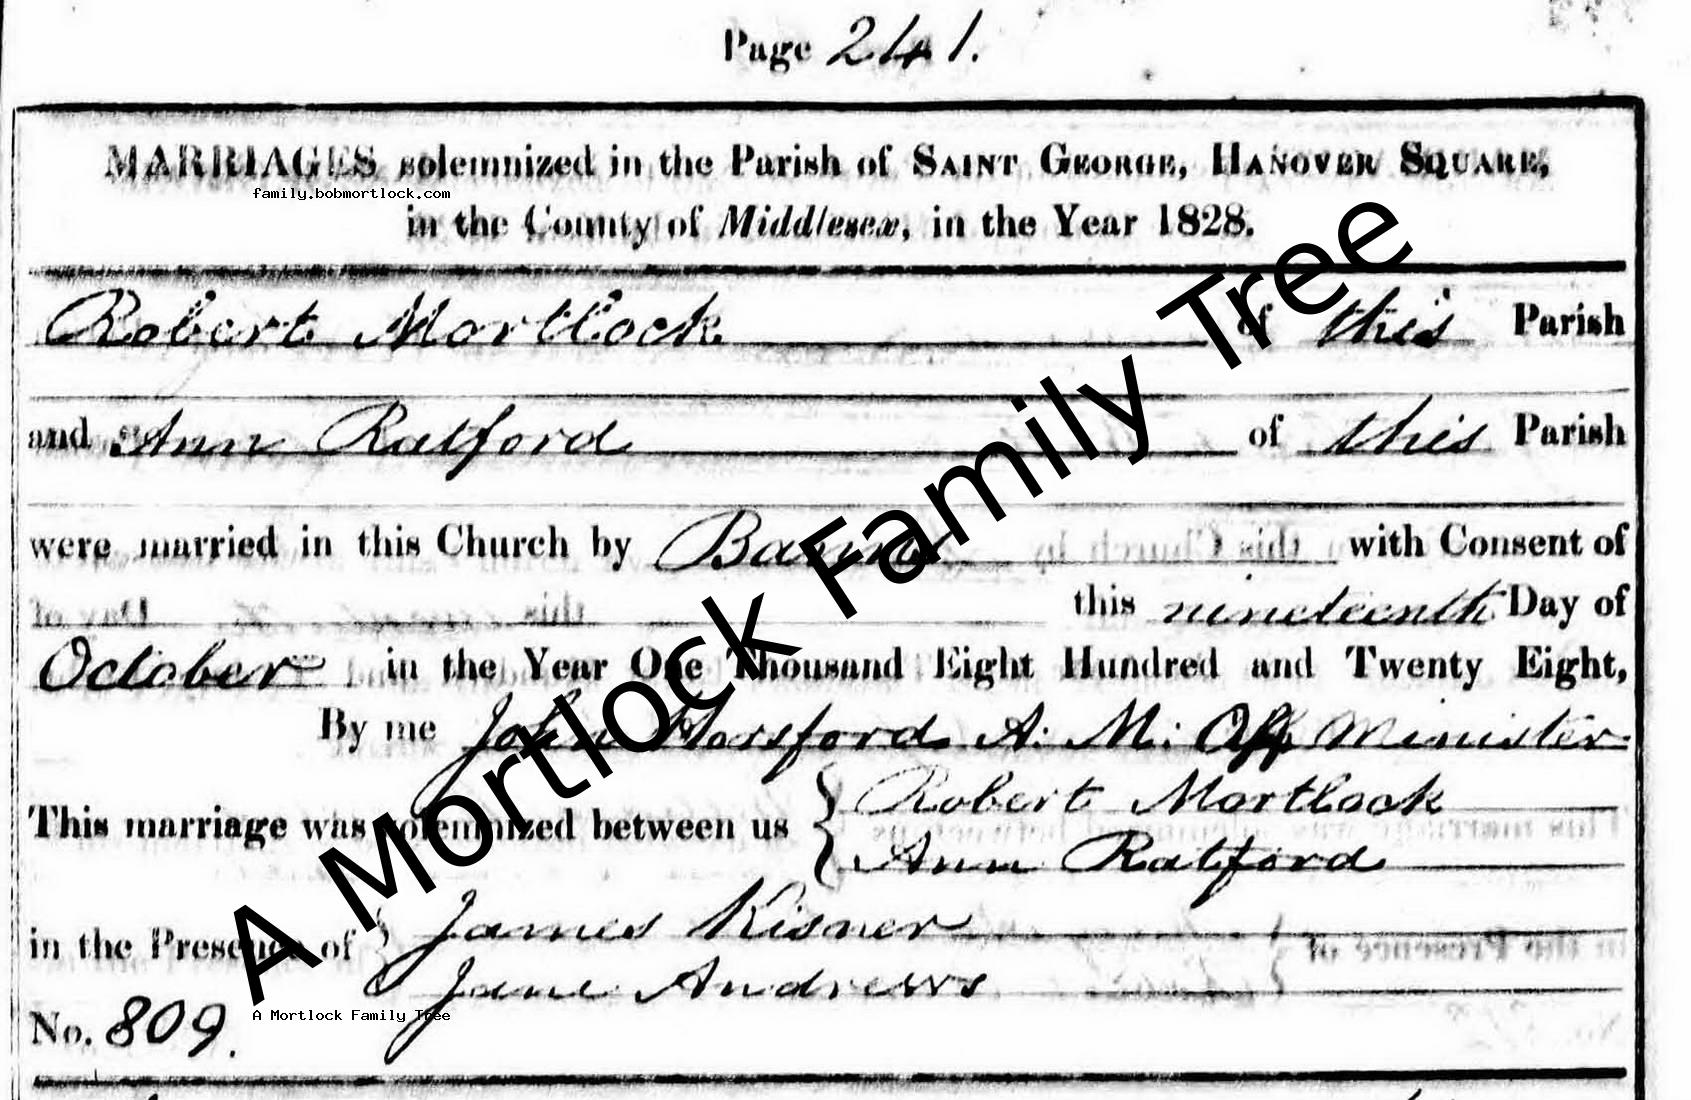 Page 241.
MARRIAGES solemnized in the Parish of SAINT GEORGE, HANOVER SQUARE,
family.bobmortlock.com
in the County of Middlesex, in the Year 1828.
Robert Mortlock of this Parish
and Ann Ratford of this Parish
were married in this Church by Banns with Consent of
this nineteenth Day of
October in the Year One Thousand Eight Hundred and Twenty Eight,
By me John Horsford A: M: Off Minister
This marriage was solemnized between us { Robert Mortlock
Ann Ratford
in the Presence of { James Kisner
Jane Andrews
No. 809.
A Mortlock Family Tree
A Mortlock Family Tree